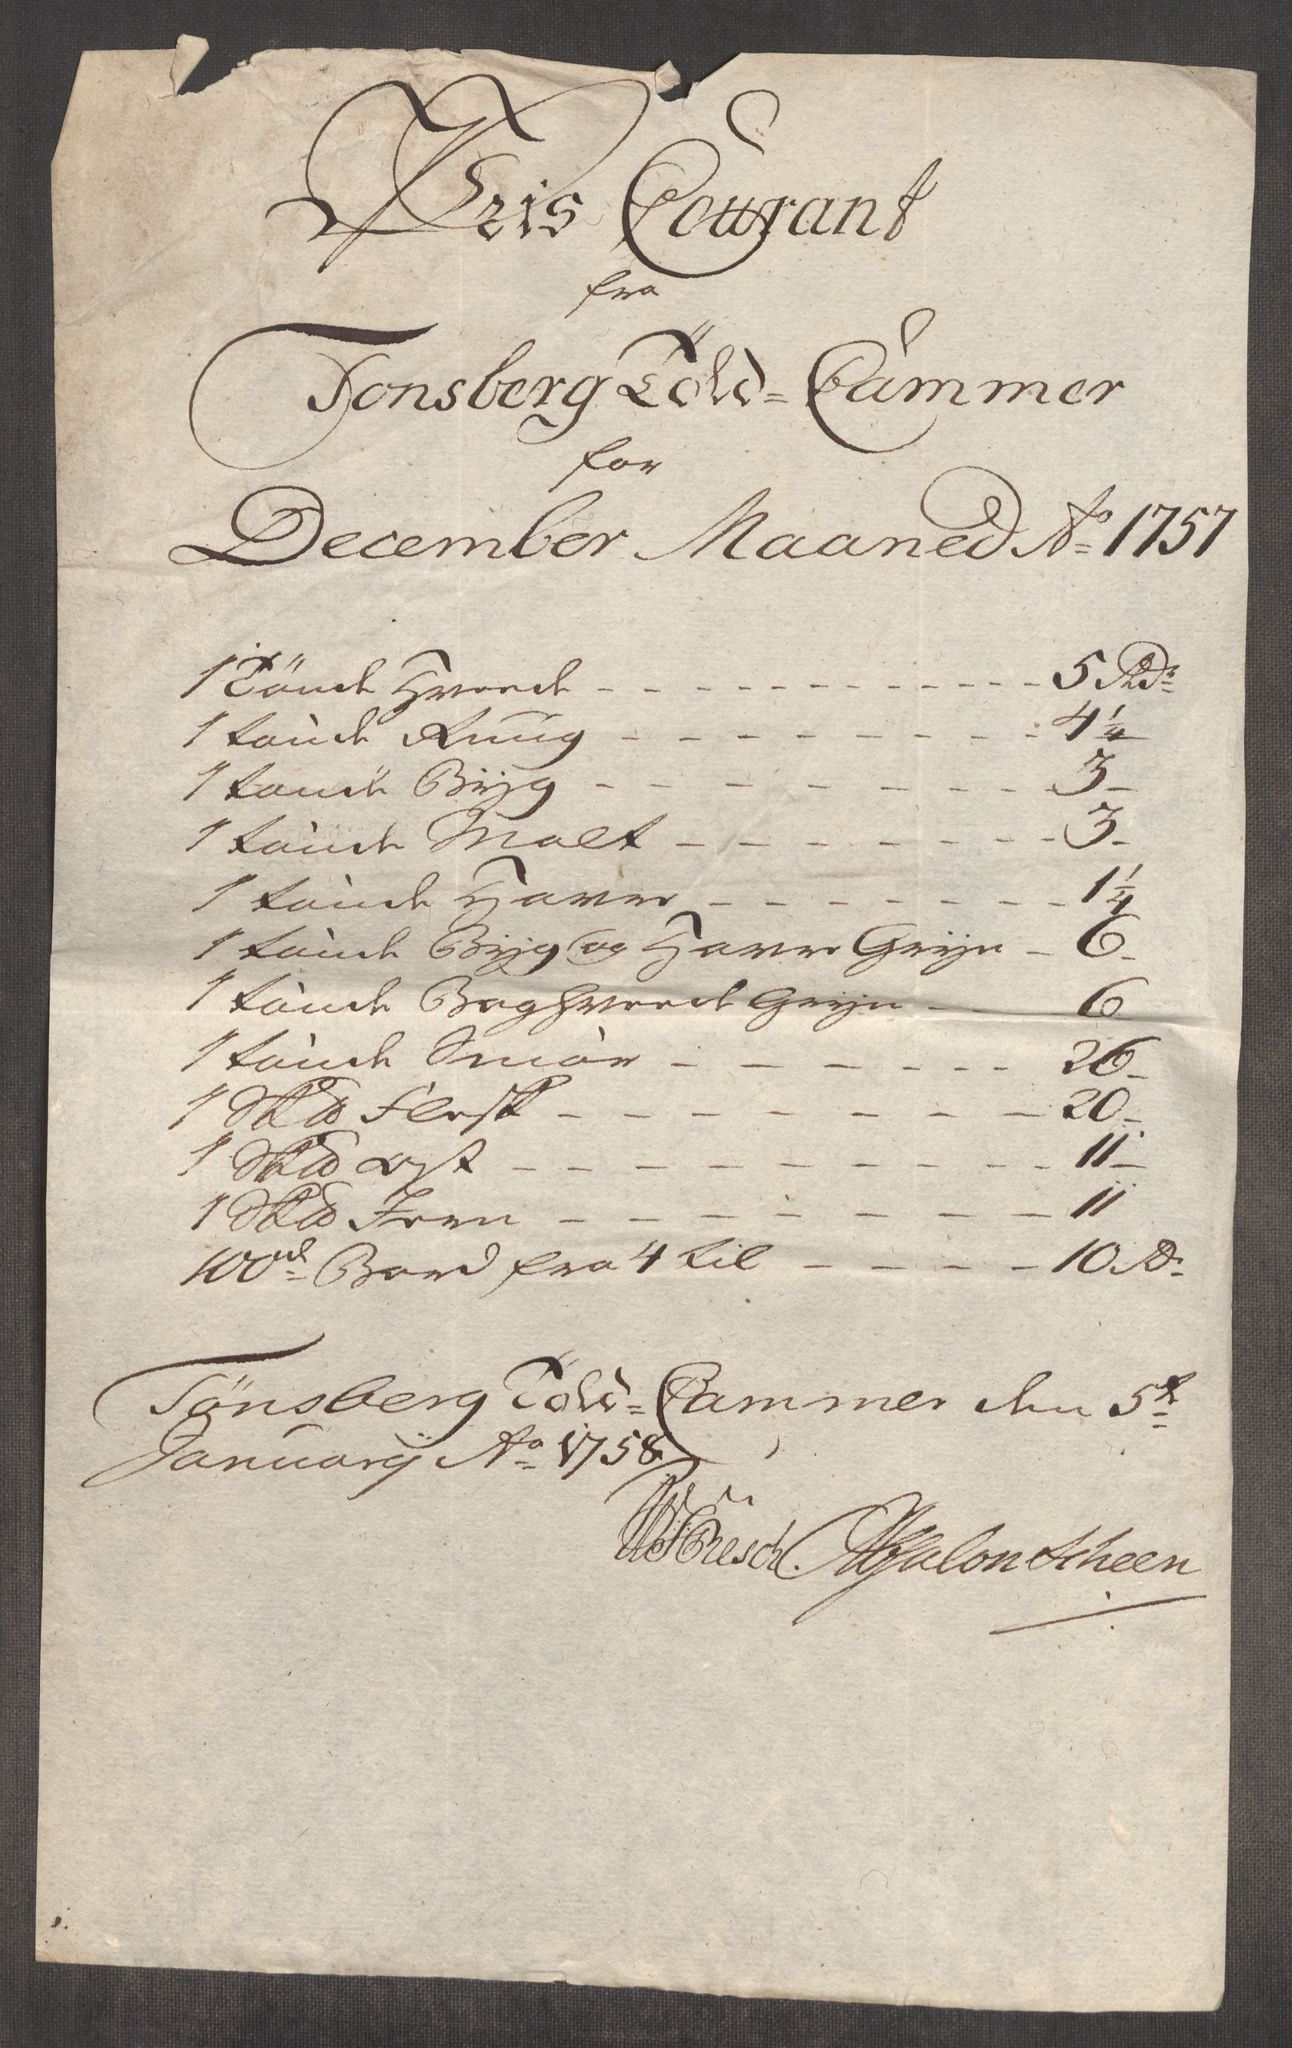 Pris Courant
fra
Tönsberg Told=Cammer
for
December Maaned Ao 1757
1 Tönde Hvede - - - 5 Rdr
1 tönde Rüüg - - - 4 1/4
1 tönde Bÿg - - - 3 -
1 tönde Malt - - - 3 -
1 tönde Havre - - - 1 1/4
1 tönde Bÿg og Havre Grÿn - 6 -
1 tönde Boghvede Grÿn - - 6
1 tönde Smör - - - 26 -
1 Sk℔ Flesk - - - 20 -
1 Sk℔ Ost - - - 11 -
1 Sk℔ Jern - - - 11
100de Bord fra 4 til - - - 10 Rdr
Tönsberg Told=Cammer den 5te
Januarÿ Ao 1758
Resch. Absalon Scheen